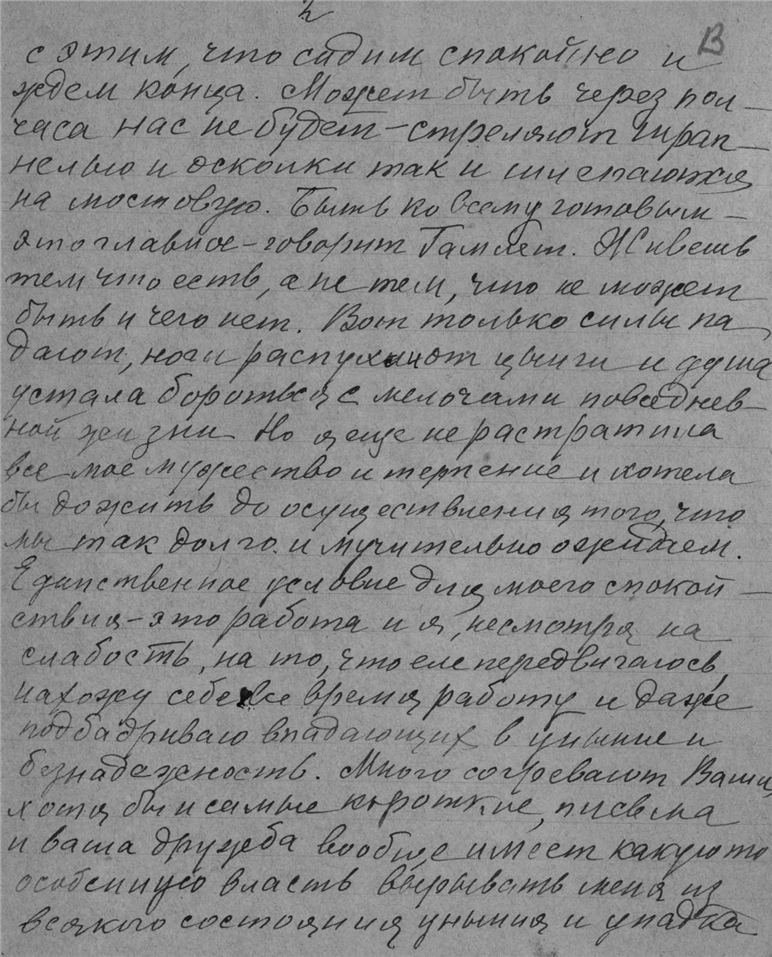 2
В
с этим, что сидим спокойно и
ждем конца. Может быть через пол-
часа нас не будет – стреляют шрап-
нелью и осколки так и шлепаются
на мостовую. Быть ко всему готовым –
это главное – говорит Гамлет. Живешь
тем что есть, а не тем, что не может
быть и чего нет. Вот только силы па
дают, ноги распухли от цынги и душа
устала бороться с мелочами повседнев-
ной жизни Но я еще не растратила
все мое мужество и терпение и хотела
бы дожить до осуществления того, что
мы так долго и мучительно ожидаем.
Единственное условие для моего спокой-
ствия – это работа и я, несмотря на
слабость, на то, что еле передвигаюсь,
нахожу себе все время работу и даже
подбадриваю впадающих в уныние и
безнадежность. Много согревают Ваши,
хотя бы и самые короткие, письма
и ваша дружба вообще имеет какую то
особенную власть вырывать меня из
всякого состояния уныния и упадка